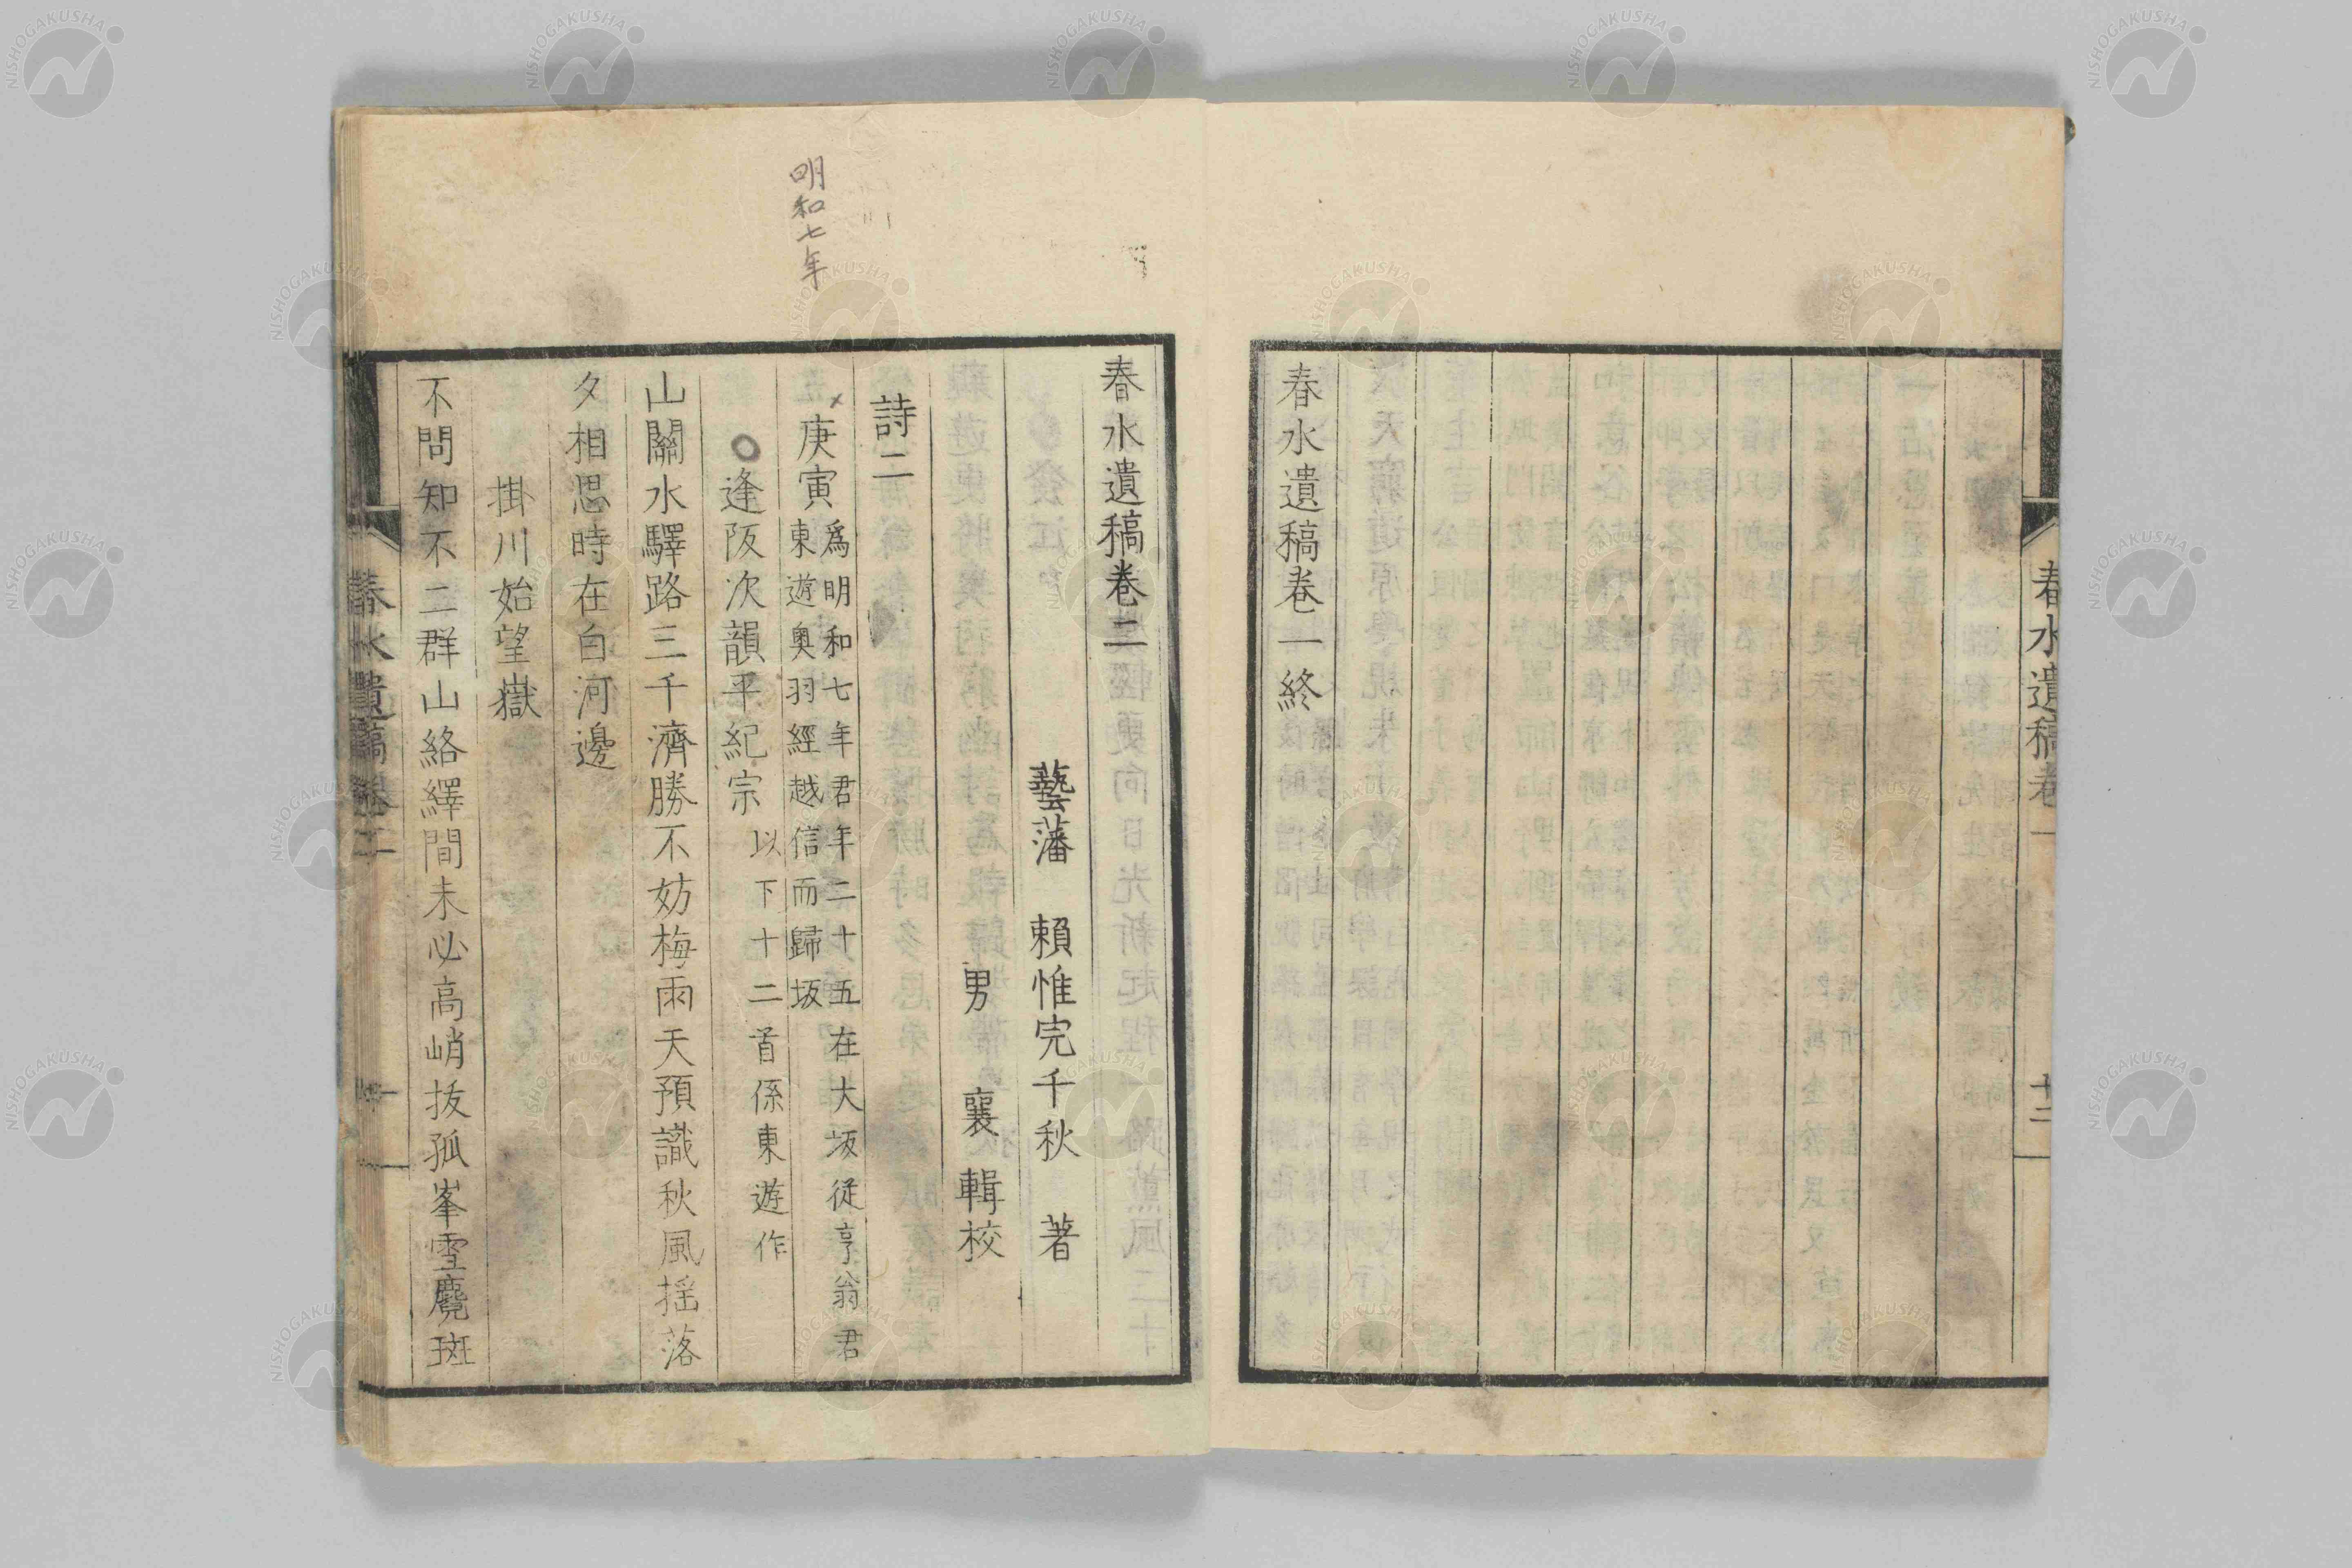 春水遺稿卷一
十二
春水遺稿卷一終
春水遺稿卷二
藝藩 賴惟完千秋 著
男 襄 輯校
詩二
明和七年
庚寅 爲明和七年君年二十五在大坂從亨翁君
東遊奧羽經越信而歸坂
逢阪次韻平紀宗 以下十二首係東遊作
山關水驛路三千濟勝不妨梅雨天預識秋風揺落
夕相思時在白河邊
掛川始望嶽
不問知不二群山絡繹間未必高峭抜孤峯雪麑斑
春水遺稿卷二
一
NISHOGAKUSHA